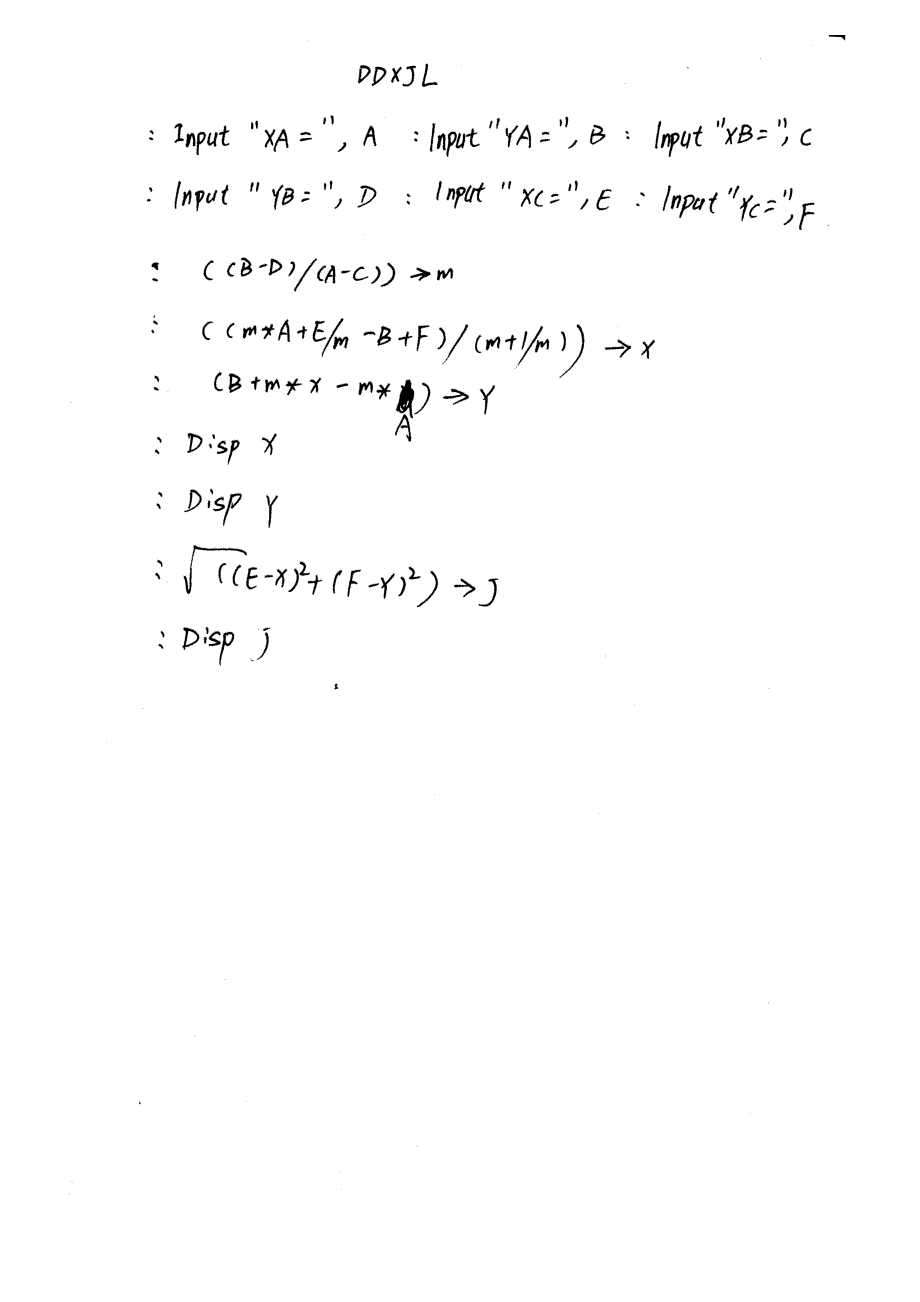 DDXJL
: Input "XA=", A : Input "YA=", B : Input "XB=", C
: Input "YB=", D : Input "XC=", E : Input "YC=", F
: ((B-D)/(A-C))→m
: ((m*A+E/m-B+F)/(m+1/m))→X
: (B+m*x-m*A)→Y
: Disp X
: Disp Y
: √((E-X)²+(F-Y)²)→J
: Disp j